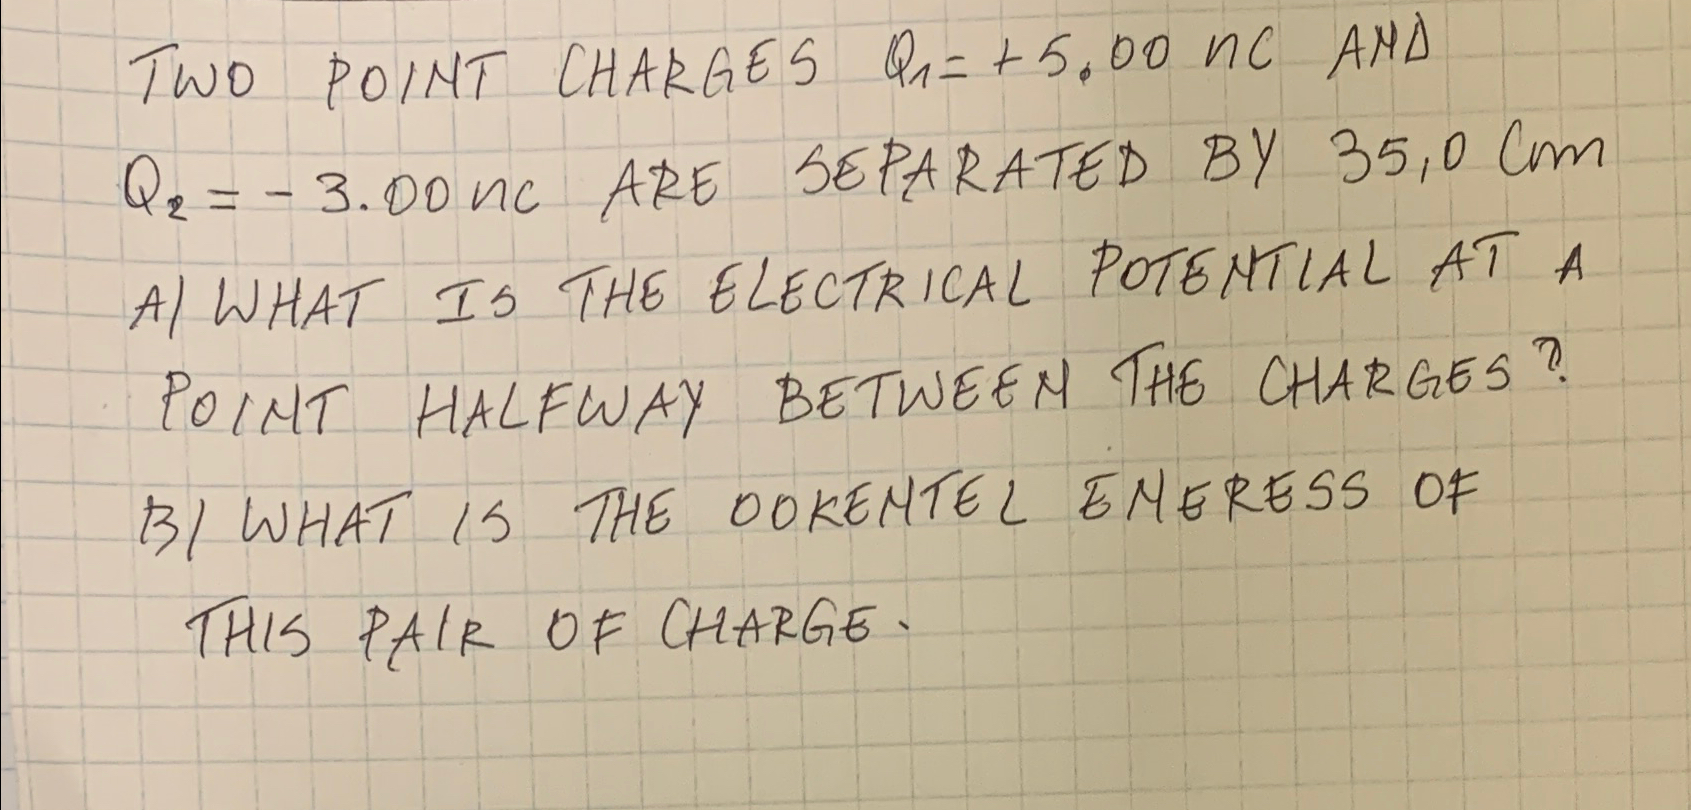 TWO POINT CHARGES Q₁ = +5.00 nC AND
Q₂ = - 3.00 nC ARE SEPARATED BY 35,0 Cm
A/ WHAT IS THE ELECTRICAL POTENTIAL AT A
POINT HALFWAY BETWEEN THE CHARGES?
B/ WHAT IS THE OOKENTEL ENERESS OF
THIS PAIR OF CHARGE.